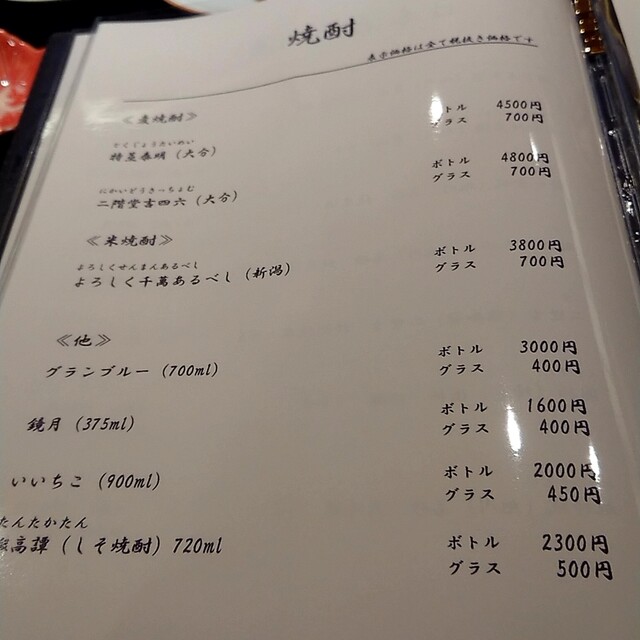 焼酎
表示価格は全て税抜き価格です
≪麦焼酎≫
とくじょうたいめい
特蒸泰明（大分） ボトル 4500円
グラス 700円
にかいどうきっちょむ
二階堂吉四六（大分） ボトル 4800円
グラス 700円
≪米焼酎≫
よろしくせんまんあるべし
よろしく千萬あるべし（新潟） ボトル 3800円
グラス 700円
≪他≫
グランブルー（700ml） ボトル 3000円
グラス 400円
鏡月（375ml） ボトル 1600円
グラス 400円
いいちこ（900ml） ボトル 2000円
グラス 450円
たんたかたん
高譚（しそ焼酎）720ml ボトル 2300円
グラス 500円